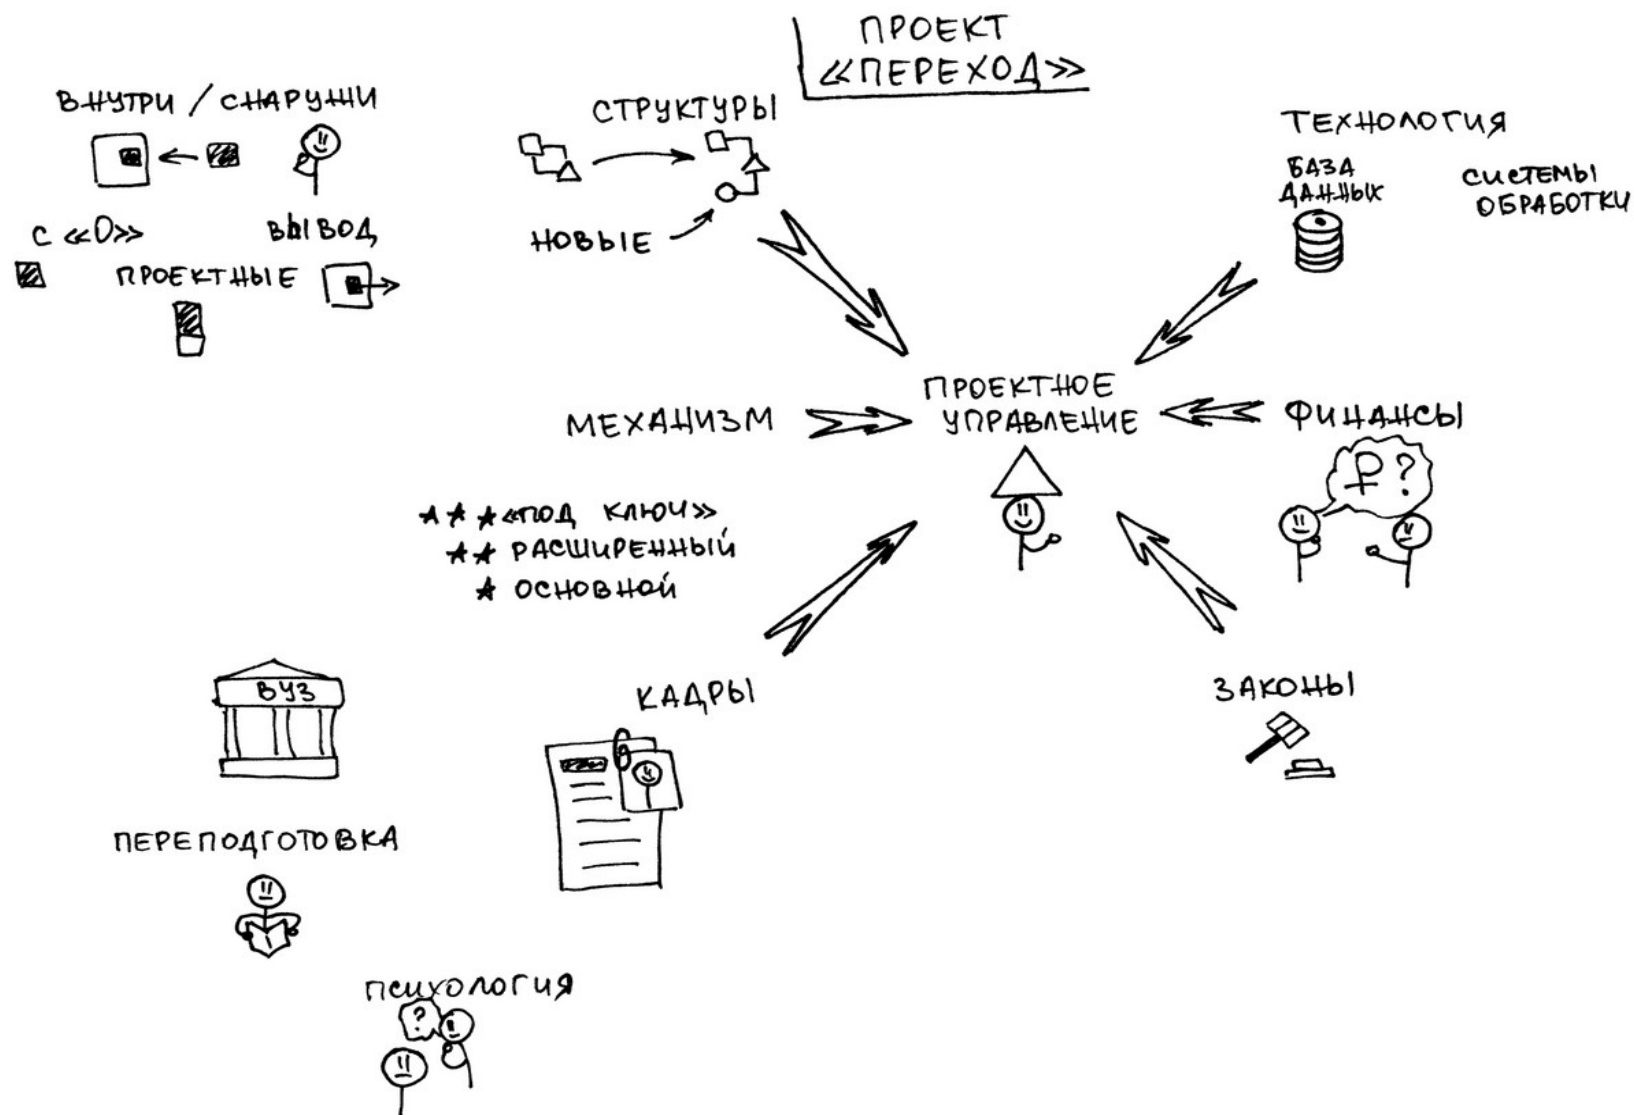 ПРОЕКТ
«ПЕРЕХОД»
ВНУТРИ / СНАРУЖИ
С «0»
ВЫВОД
ПРОЕКТНЫЕ
СТРУКТУРЫ
НОВЫЕ
ТЕХНОЛОГИЯ
БАЗА
ДАННЫХ
СИСТЕМЫ
ОБРАБОТКИ
ПРОЕКТНОЕ
УПРАВЛЕНИЕ
МЕХАНИЗМ
★★★ «ПОД КЛЮЧ»
★★ РАСШИРЕННЫЙ
★ ОСНОВНОЙ
ФИНАНСЫ
₽?
КАДРЫ
ЗАКОНЫ
ВУЗ
ПЕРЕПОДГОТОВКА
ПСИХОЛОГИЯ
?